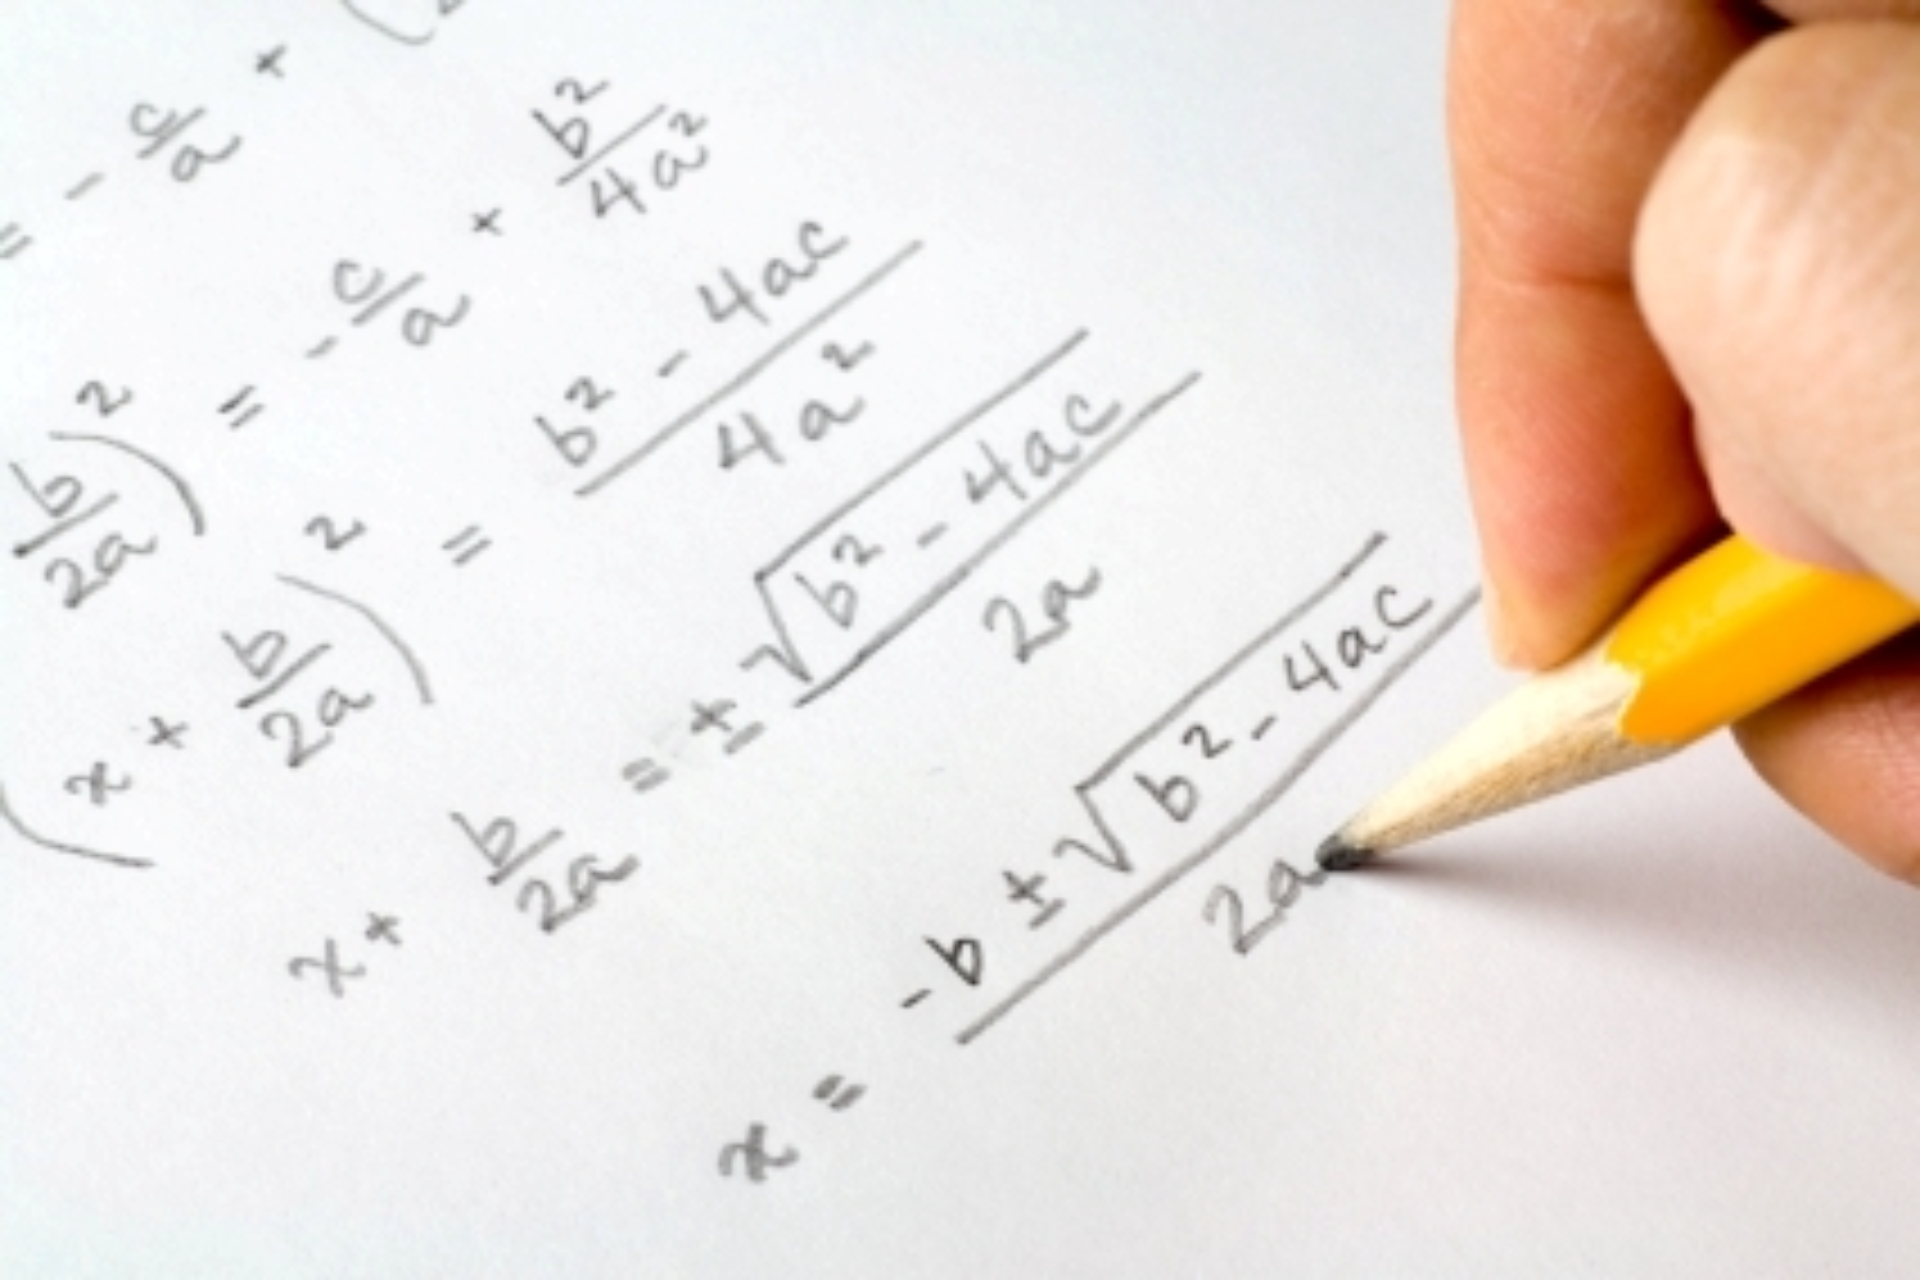 = - c/a + (
b/2a)² = - c/a + b²/4a²
(x + b/2a)² = b² - 4ac / 4a²
x + b/2a = ± √(b² - 4ac) / 2a
x = -b ± √(b² - 4ac) / 2a